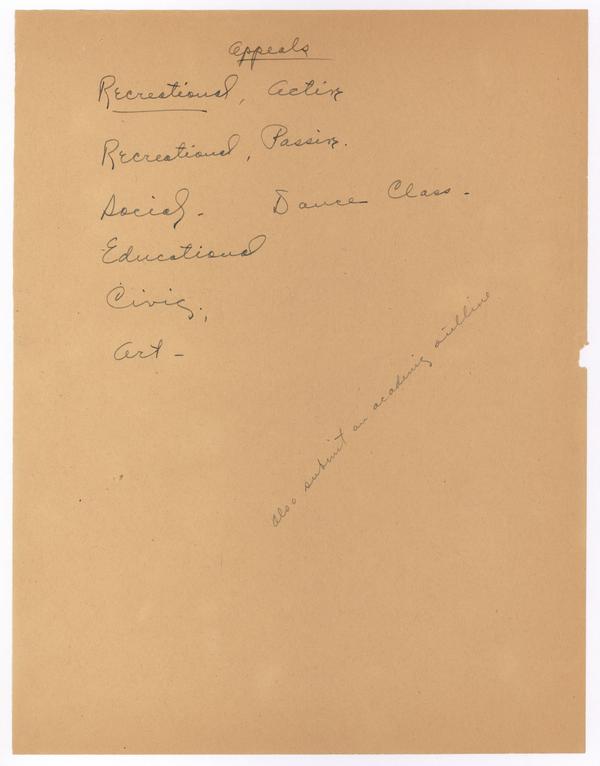 Appeals
Recreational, Active
Recreational, Passive.
Social - Dance Class -
Educational
Civic,
Art -
Also submit an academic outline